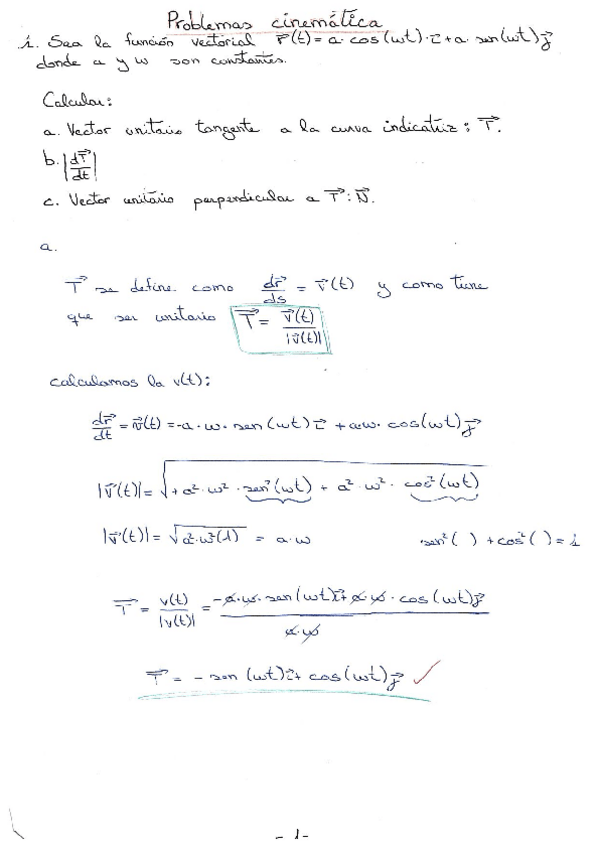 Problemas cinemática
1. Sea la función vectorial r⃗(t) = a·cos(ωt)·i⃗ + a·sen(ωt)j⃗
donde a y ω son constantes.
Calcular:
a. Vector unitario tangente a la curva indicatriz: T⃗.
b. |dT⃗/dt|
c. Vector unitario perpendicular a T⃗: N⃗.
a.
T⃗ se define como dr⃗/ds = v⃗(t) y como tiene
que ser unitario T⃗ = v⃗(t)/|v⃗(t)|
calculamos la v(t):
dr⃗/dt = v⃗(t) = -a·ω·sen(ωt)i⃗ + a·ω·cos(ωt)j⃗
|v⃗(t)| = √(+a²·ω²·sen²(ωt) + a²·ω²·cos²(ωt))
|v⃗(t)| = √(a²·ω²(1)) = a·ω sen²( ) + cos²( ) = 1
T⃗ = v(t)/|v(t)| = (-a·ω·sen(ωt)i⃗ + a·ω·cos(ωt)j⃗)/(a·ω)
T⃗ = -sen(ωt)i⃗ + cos(ωt)j⃗ ✓
-1-